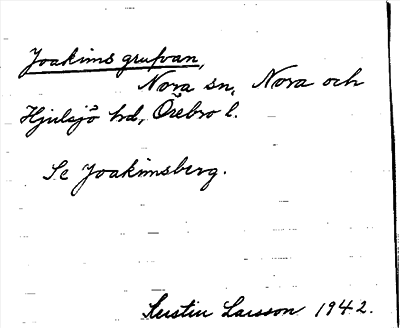 Joakims grufvan,
Nora sn, Nora och
Hjulsjö hd, Örebro l.
Se Joakimsberg.
Kerstin Larsson 1942.